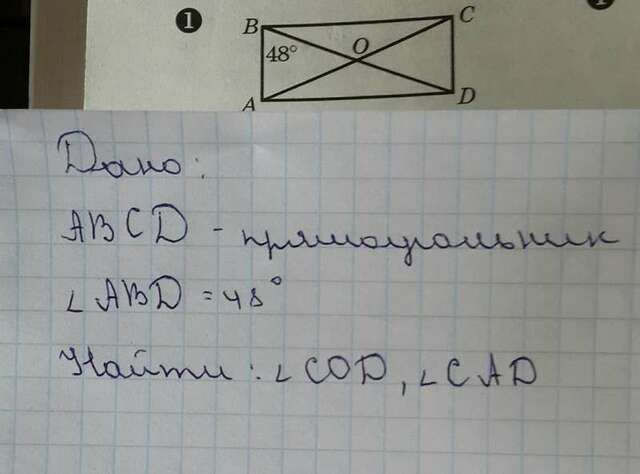 1
B
C
48°
O
A
D
Дано:
ABCD - прямоугольник
∠ABD = 48°
Найти: ∠COD, ∠CAD